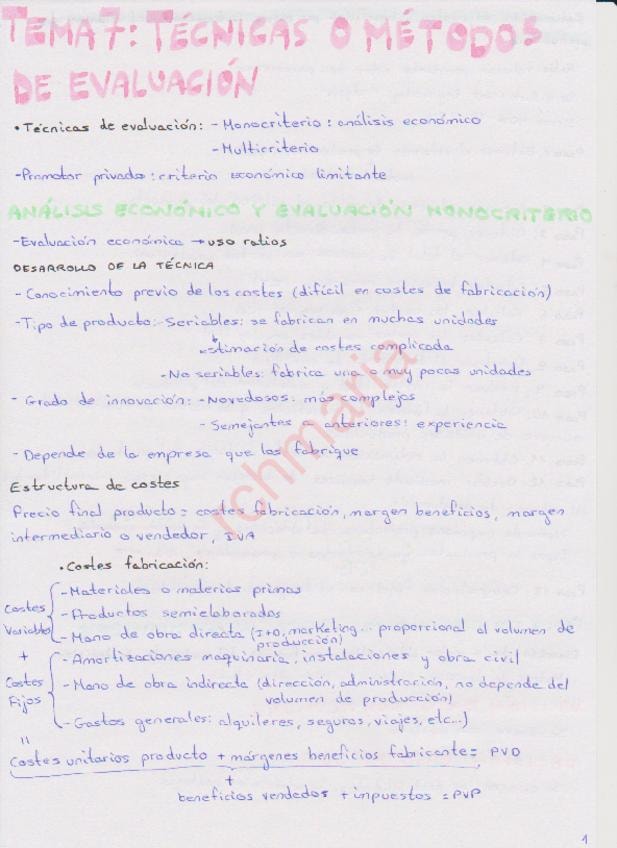 TEMA 7: TÉCNICAS O MÉTODOS
DE EVALUACIÓN
• Técnicas de evaluación: - Monocriterio: análisis económico
- Multicriterio
- Promotor privado: criterio económico limitante
ANÁLISIS ECONÓMICO Y EVALUACIÓN MONOCRITERIO
- Evaluación económica → uso ratios
DESARROLLO DE LA TÉCNICA
- Conocimiento previo de los costes (difícil en costes de fabricación)
- Tipo de producto: - Seriables: se fabrican en muchas unidades
↓
Estimación de costes complicada
- No seriables: fabrica una o muy pocas unidades
- Grado de innovación: - Novedosos: más complejos
- Semejantes a anteriores: experiencia
- Depende de la empresa que los fabrique
Estructura de costes
Precio final producto = costes fabricación, margen beneficios, margen
intermediario o vendedor, IVA
• Costes fabricación:
Costes Variables
- Materiales o materias primas
- Productos semielaborados
- Mano de obra directa (I+D, marketing... proporcional al volumen de
producción)
+
Costes Fijos
- Amortizaciones maquinaria, instalaciones y obra civil
- Mano de obra indirecta (dirección, administrarión, no depende del
volumen de producción)
- Gastos generales: alquileres, seguros, viajes, etc...)
=
Costes unitarios producto + márgenes beneficios fabricante = PVD
+
beneficios vendedos + inpuestos = PVP
1
rchmaria